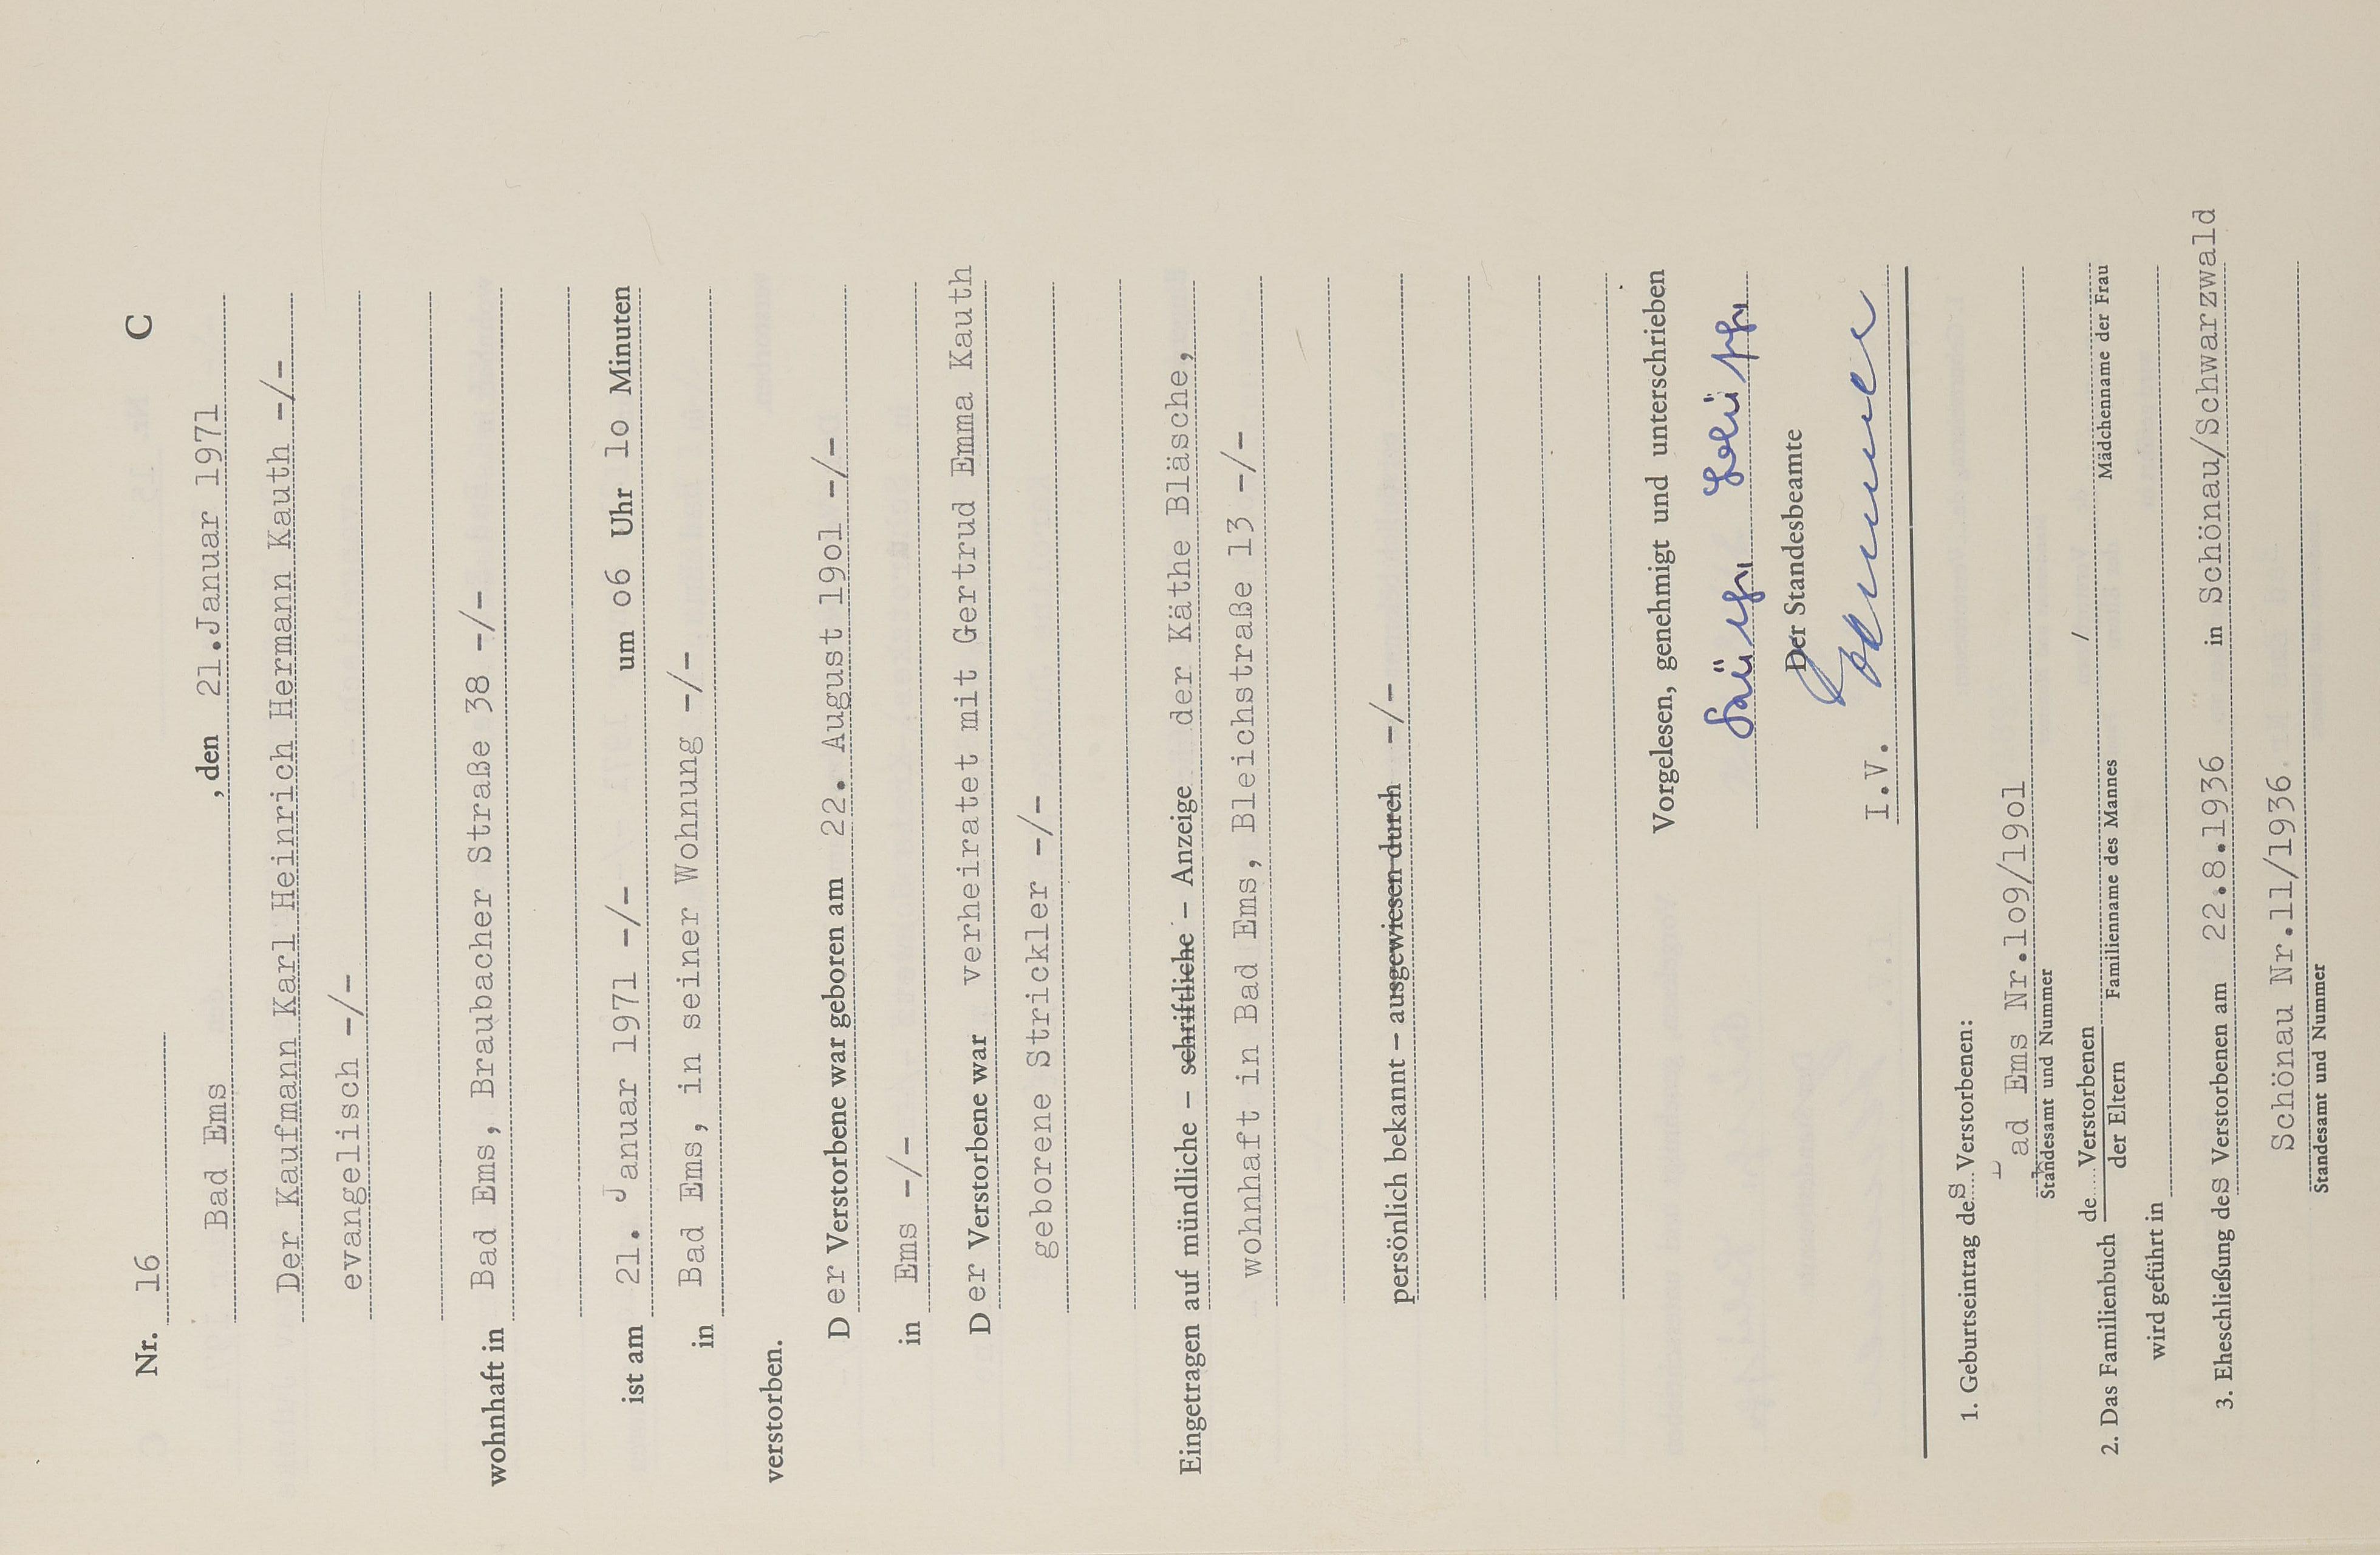 Nr. 16 C
Bad Ems , den 21.Januar 1971
Der Kaufmann Karl Heinrich Hermann Kauth -/-
evangelisch -/-
wohnhaft in Bad Ems, Braubacher Straße 38 -/-
ist am 21. Januar 1971 -/- um o6 Uhr 1o Minuten
in Bad Ems, in seiner Wohnung -/-
verstorben.
D er Verstorbene war geboren am 22. August 19o1 -/-
in Ems -/-
D er Verstorbene war verheiratet mit Gertrud Emma Kauth
geborene Strickler -/-
Eingetragen auf mündliche – schriftliche – Anzeige der Käthe Bläsche,
wohnhaft in Bad Ems, Bleichstraße 13 -/-
persönlich bekannt – ausgewiesen durch -/-
Vorgelesen, genehmigt und unterschrieben
Der Standesbeamte
I.V.
1. Geburtseintrag des Verstorbenen:
Bad Ems Nr.1o9/19o1
Standesamt und Nummer
2. Das Familienbuch de.... Verstorbenen /
der Eltern Familienname des Mannes Mädchenname der Frau
wird geführt in
3. Eheschließung des Verstorbenen am 22.8.1936 in Schönau/Schwarzwald
Schönau Nr.11/1936
Standesamt und Nummer